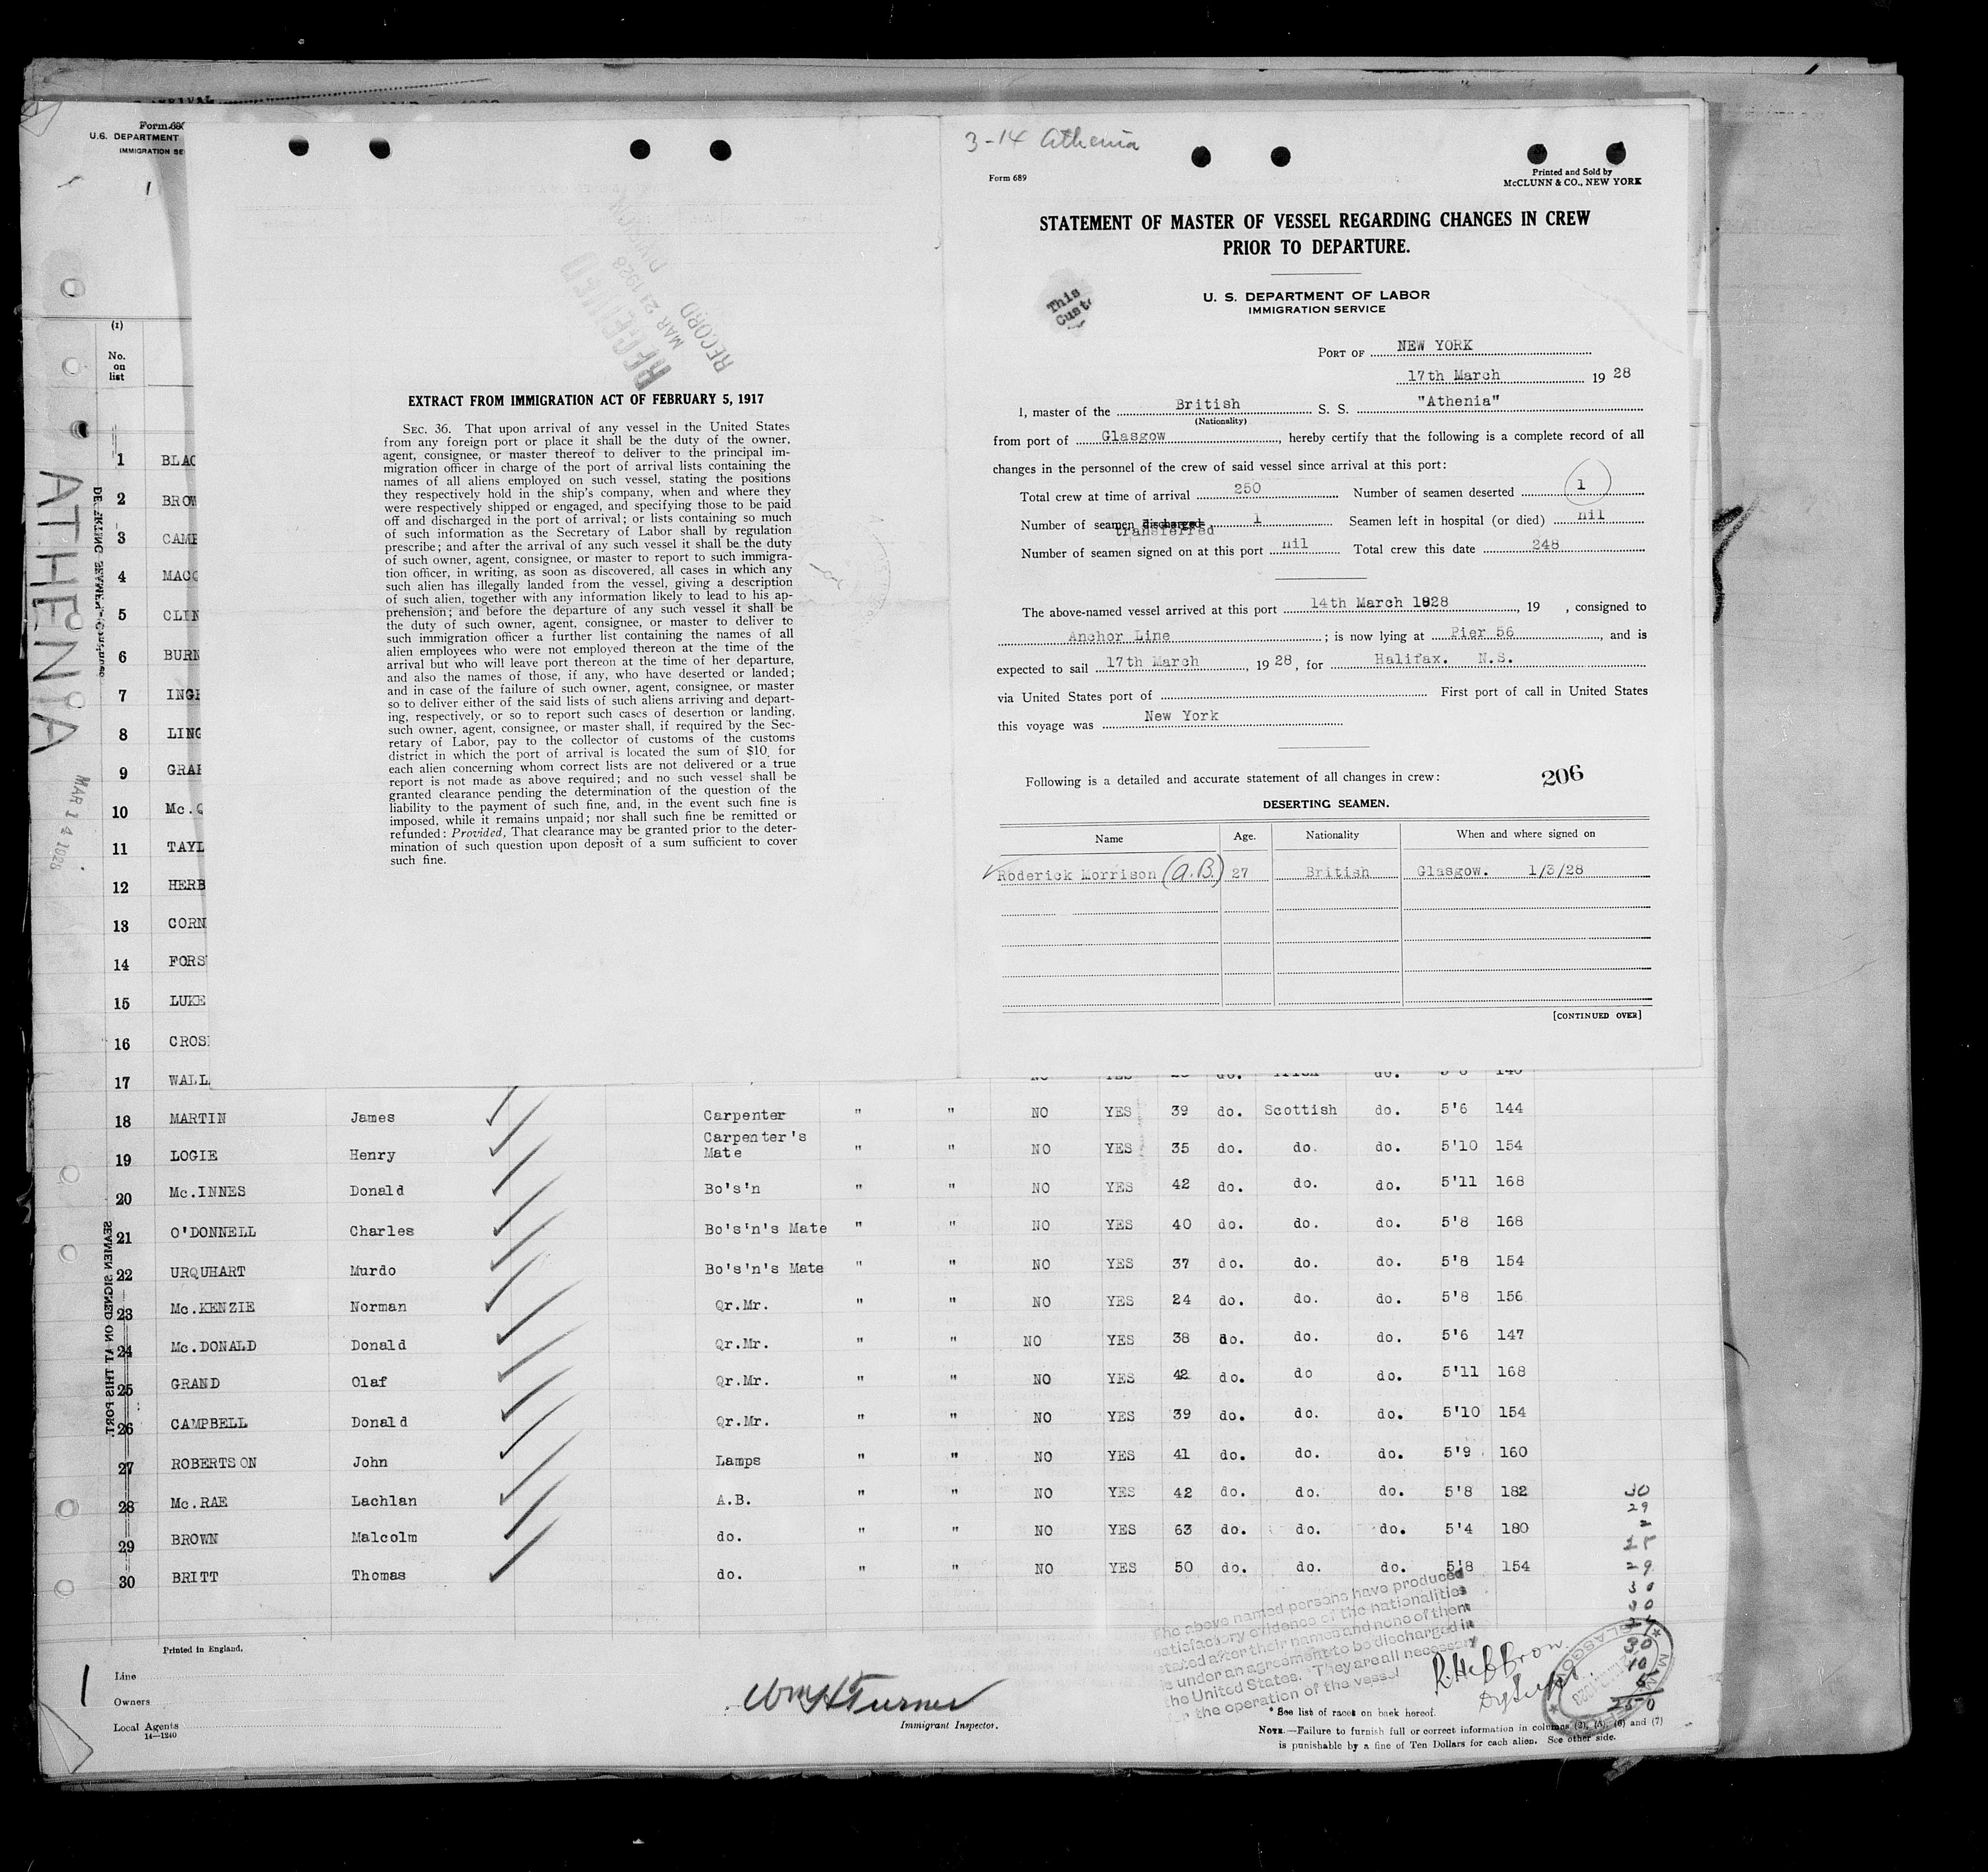 3-14 Athenia
Form 689
Printed and Sold by
McCLUNN & CO., NEW YORK
STATEMENT OF MASTER OF VESSEL REGARDING CHANGES IN CREW
PRIOR TO DEPARTURE.
This
Cust
U. S. DEPARTMENT OF LABOR
IMMIGRATION SERVICE
PORT OF NEW YORK
17th March 1928
I, master of the British S. S. "Athenia"
(Nationality)
from port of Glasgow, hereby certify that the following is a complete record of all
changes in the personnel of the crew of said vessel since arrival at this port:
Total crew at time of arrival 250 Number of seamen deserted 1
Number of seamen discharged 1 Seamen left in hospital (or died) nil
transferred
Number of seamen signed on at this port nil Total crew this date 248
The above-named vessel arrived at this port 14th March 1928, 19 , consigned to
Anchor Line; is now lying at Pier 56, and is
expected to sail 17th March, 1928, for Halifax. N.S.
via United States port of First port of call in United States
this voyage was New York
Following is a detailed and accurate statement of all changes in crew: 206
DESERTING SEAMEN.
Name Age. Nationality When and where signed on
Roderick Morrison (A.B.) 27 British Glasgow. 1/3/28
[CONTINUED OVER]
RECEIVED
MAR 21 1928
RECORD DIVISION
EXTRACT FROM IMMIGRATION ACT OF FEBRUARY 5, 1917
SEC. 36. That upon arrival of any vessel in the United States
from any foreign port or place it shall be the duty of the owner,
agent, consignee, or master thereof to deliver to the principal im-
migration officer in charge of the port of arrival lists containing the
names of all aliens employed on such vessel, stating the positions
they respectively hold in the ship's company, when and where they
were respectively shipped or engaged, and specifying those to be paid
off and discharged in the port of arrival; or lists containing so much
of such information as the Secretary of Labor shall by regulation
prescribe; and after the arrival of any such vessel it shall be the duty
of such owner, agent, consignee, or master to report to such immigra-
tion officer, in writing, as soon as discovered, all cases in which any
such alien has illegally landed from the vessel, giving a description
of such alien, together with any information likely to lead to his ap-
prehension; and before the departure of any such vessel it shall be
the duty of such owner, agent, consignee, or master to deliver to
such immigration officer a further list containing the names of all
alien employees who were not employed thereon at the time of the
arrival but who will leave port thereon at the time of her departure,
and also the names of those, if any, who have deserted or landed;
and in case of the failure of such owner, agent, consignee, or master
so to deliver either of the said lists of such aliens arriving and depart-
ing, respectively, or so to report such cases of desertion or landing,
such owner, agent, consignee, or master shall, if required by the Sec-
retary of Labor, pay to the collector of customs of the customs
district in which the port of arrival is located the sum of $10 for
each alien concerning whom correct lists are not delivered or a true
report is not made as above required; and no such vessel shall be
granted clearance pending the determination of the question of the
liability to the payment of such fine, and, in the event such fine is
imposed, while it remains unpaid; nor shall such fine be remitted or
refunded: Provided, That clearance may be granted prior to the deter-
mination of such question upon deposit of a sum sufficient to cover
such fine.
Form 680
U.S. DEPARTMENT
IMMIGRATION SE
1
(1)
No.
on
list
ATHENIA
MAR 14 1928
DESERTING SEAMEN
SEAMEN SIGNED ON AT THIS PORT.
1 BLAC
2 BROW
3 CAMP
4 MACC
5 CLIN
6 BURN
7 INGL
8 LING
9 GRAH
10 Mc.Q
11 TAYL
12 HERB
13 CORN
14 FORS
15 LUKE
16 CROS
17 WALL
18 MARTIN James Carpenter " " NO YES 39 do. Scottish do. 5'6 144
19 LOGIE Henry Carpenter's Mate " " NO YES 35 do. do. do. 5'10 154
20 Mc.INNES Donald Bo's'n " " NO YES 42 do. do. do. 5'11 168
21 O'DONNELL Charles Bo's'n's Mate " " NO YES 40 do. do. do. 5'8 168
22 URQUHART Murdo Bo's'n's Mate " " NO YES 37 do. do. do. 5'8 154
23 Mc.KENZIE Norman Qr.Mr. " " NO YES 24 do. do. do. 5'8 156
24 Mc.DONALD Donald Qr.Mr. " " NO YES 38 do. do. do. 5'6 147
25 GRAND Olaf Qr.Mr. " " NO YES 42 do. do do. 5'11 168
26 CAMPBELL Donald Qr.Mr. " " NO YES 39 do. do. do. 5'10 154
27 ROBERTSON John Lamps " " NO YES 41 do. do. do. 5'9 160
28 Mc.RAE Lachlan A.B. " " NO YES 42 do. do. do. 5'8 182
29 BROWN Malcolm do. " " NO YES 63 do. do. do. 5'4 180
30 BRITT Thomas do. " " NO YES 50 do. do. do. 5'8 154
30
29
29
30
30
30
10
250
The above named persons have produced
satisfactory evidence of the nationalities
stated after their names and none of them
is under an agreement to be discharged in
the United States. They are all necessary
for the operation of the vessel
GLASGOW
Printed in England.
1
Line
Owners
Local Agents
14—1240
Wm H Turner
Immigrant Inspector.
* See list of races on back hereof.
NOTE.—Failure to furnish full or correct information in columns (2), (5), (6) and (7)
is punishable by a fine of Ten Dollars for each alien. See other side.